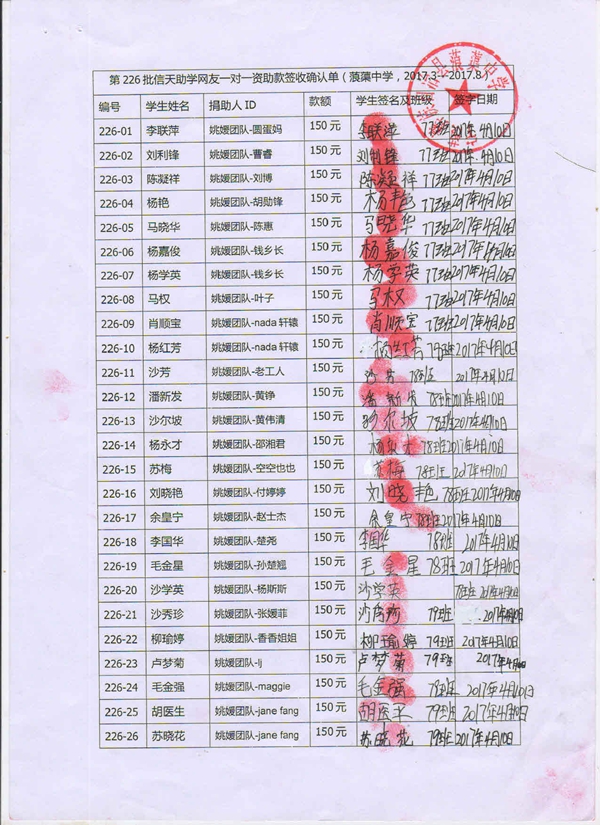 第226批信天助学网友一对一资助款签收确认单（蒗蕖中学，2017.3--2017.8）
编号 学生姓名 捐助人ID 款额 学生签名及班级 签字日期
226-01 李联萍 姚媛团队-圆蛋妈 150元 李联萍 77班 2017年4月10日
226-02 刘利锋 姚媛团队-曹睿 150元 刘利锋 77班 2017年4月10日
226-03 陈凝祥 姚媛团队-刘博 150元 陈凝祥 77班 2017年4月10日
226-04 杨艳 姚媛团队-胡勋锋 150元 杨艳 77班 2017年4月10日
226-05 马晓华 姚媛团队-陈惠 150元 马晓华 77班 2017年4月10日
226-06 杨嘉俊 姚媛团队-钱乡长 150元 杨嘉俊 77班 2017年4月10日
226-07 杨学英 姚媛团队-钱乡长 150元 杨学英 77班 2017年4月10日
226-08 马权 姚媛团队-叶子 150元 马权 77班 2017年4月10日
226-09 肖顺宝 姚媛团队-nada轩辕 150元 肖顺宝 77班 2017年4月10日
226-10 杨红芳 姚媛团队-nada轩辕 150元 杨红芳 79班 2017年4月10日
226-11 沙芳 姚媛团队-老工人 150元 沙芳 78班 2017年4月10日
226-12 潘新发 姚媛团队-黄铮 150元 潘新发 78班 2017年4月10日
226-13 沙尔坡 姚媛团队-黄伟清 150元 沙尔坡 78班 2017年4月10日
226-14 杨永才 姚媛团队-邵湘君 150元 杨永才 78班 2017年4月10日
226-15 苏梅 姚媛团队-空空也也 150元 苏梅 78班 2017年4月10日
226-16 刘晓艳 姚媛团队-付婷婷 150元 刘晓艳 78班 2017年4月10日
226-17 余皇宁 姚媛团队-赵士杰 150元 余皇宁 78班 2017年4月10日
226-18 李国华 姚媛团队-楚尧 150元 李国华 78班 2017年4月10日
226-19 毛金星 姚媛团队-孙楚翘 150元 毛金星 78班 2017年4月10日
226-20 沙学英 姚媛团队-杨斯斯 150元 沙学英 78班 2017年4月10日
226-21 沙秀珍 姚媛团队-张媛菲 150元 沙秀珍 79班 2017年4月10日
226-22 柳瑜婷 姚媛团队-香香姐姐 150元 柳瑜婷 79班 2017年4月10日
226-23 卢梦菊 姚媛团队-lj 150元 卢梦菊 79班 2017年4月10日
226-24 毛金强 姚媛团队-maggie 150元 毛金强 79班 2017年4月10日
226-25 胡医生 姚媛团队-jane fang 150元 胡医生 79班 2017年4月10日
226-26 苏晓花 姚媛团队-jane fang 150元 苏晓花 79班 2017年4月10日